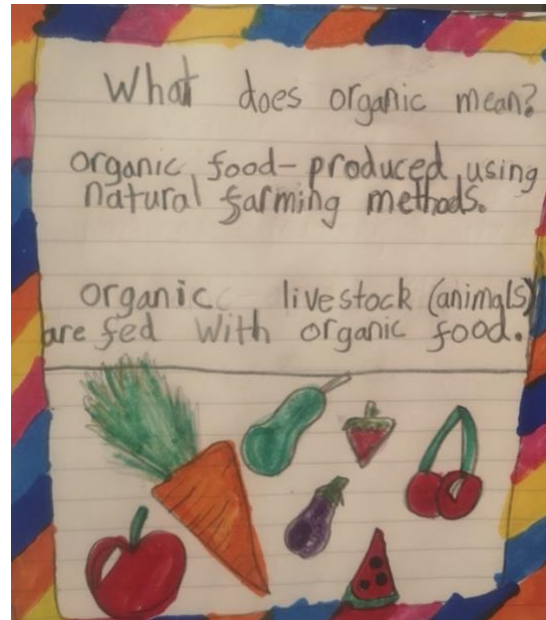 What does organic mean?
organic food- produced using
natural farming methods.
organic livestock (animals)
are fed with organic food.